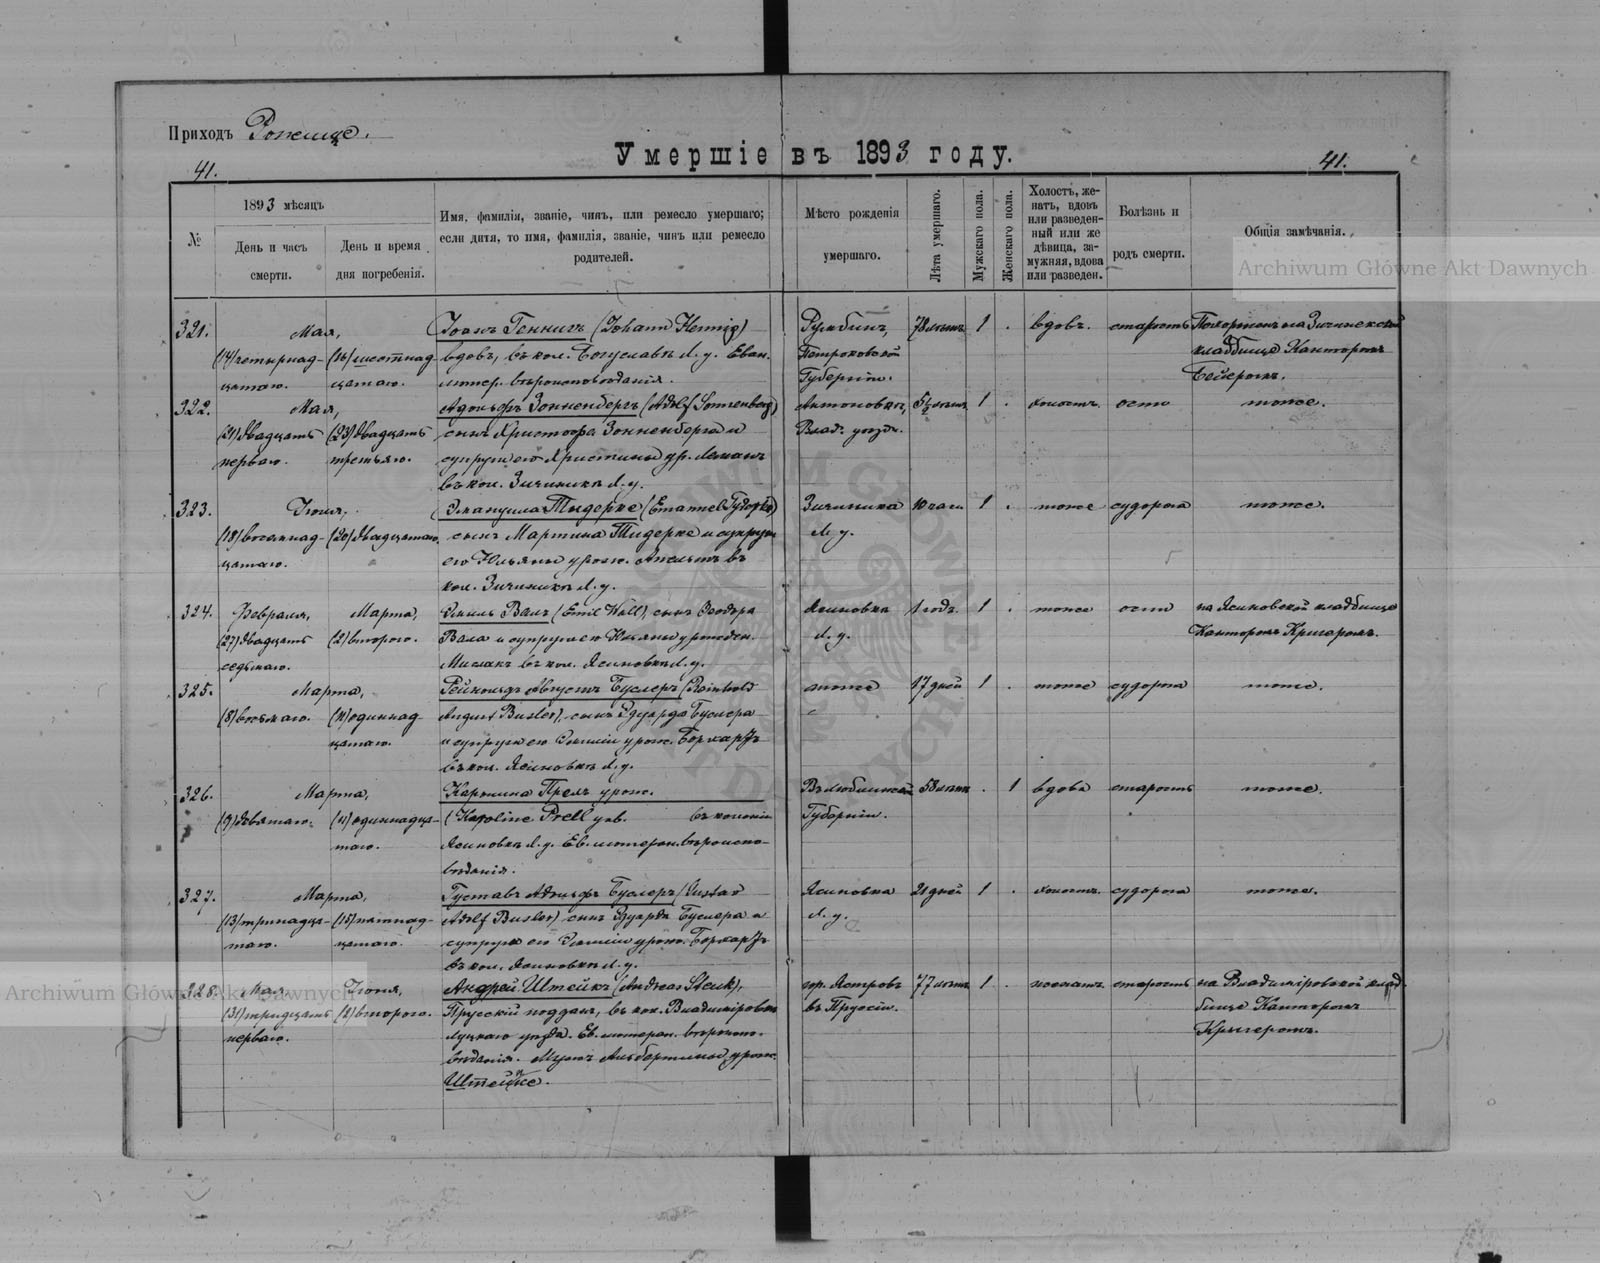 Приходъ Рожище.
Умершіе въ 1893 году.
41.
41.
№
1893 мѣсяцъ
День и часъ
смерти.
День и время
дня погребенія.
Имя, фамилія, званіе, чинъ, или ремесло умершаго;
если дитя, то имя, фамилія, званіе, чинъ или ремесло
родителей.
Мѣсто рожденія
умершаго.
Лѣта умершаго.
Мужскаго пола.
Женскаго пола.
Холостъ, же-
натъ, вдовъ
или разведен-
ный или же
дѣвица, за-
мужняя, вдова
или разведен.
Болѣзнь и
родъ смерти.
Общія замѣчанія.
Archiwum Główne Akt Dawnych
321.
Мая,
(14) четырнад-
цатаго.
(16) шестнад-
цатаго.
Іоаннъ Геннигъ (Johann Hennig)
вдовъ, въ кол. Богуславкѣ Л. у. Еван.
лютер. вѣроисповѣданія.
Петроковской
Губерніи.
78 лѣтъ
1
.
вдовъ.
старость
Похороненъ на
кладбищѣ Канторомъ
322.
Мая,
(21) двадцать
перваго.
(23) двадцать
третьяго.
Адольфъ Зонненбергъ (Adolf Sonnenberg)
сынъ Христофа Зонненберга и
супруги его Христины ур. Леманъ
въ кол. Л. у.
Антоновка,
Влад. уѣзда.
5½ лѣтъ
1
.
холостъ.
оспа
тоже.
323.
Іюня,
(18) восемнад-
цатаго.
(20) двадцатаго.
Эмануилъ Тидерке (Emanuel
сынъ Мартина Тидерке и супруги
его Юльяны урож. въ
кол. Л. у.
Л. у.
1
.
тоже
судорога
тоже.
324.
Февраля,
(27) двадцать
седьмаго.
Марта,
(2) втораго.
Эмиль Валъ (Emil Wall), сынъ Теодора
Вала и супруги его Юльяны урожден.
въ кол. Ясиновкѣ Л. у.
Ясиновка
Л. у.
1 годъ
1
.
тоже
оспа
на Ясиновской кладбищѣ
Канторомъ Кригеромъ.
325.
Марта,
(8) восьмаго.
(11) одиннад-
цатаго.
Рейнольдъ Августъ Буслеръ (Reinhold
August Busler), сынъ Эдуарда Буслера
и супруги его Эмиліи урож. Боркартъ
въ кол. Ясиновкѣ Л. у.
тоже
17 дней
1
.
тоже
судорога
тоже.
326.
Марта,
(9) девятаго.
(11) одиннадца-
таго.
Каролина Прелъ урож.
(Karoline Prell geb. въ колоніи
Ясиновкѣ Л. у. Ев. лютеран. вѣроиспо-
вѣданія.
Въ Люблинской
Губерніи.
58 лѣтъ
.
1
вдова
старость
тоже.
327.
Марта,
(13) тринадца-
таго.
(15) пятнад-
цатаго.
Густавъ Адольфъ Буслеръ (Gustav
Adolf Busler) сынъ Эдуарда Буслера и
супруги его Эмиліи урож. Боркартъ
въ кол. Ясиновкѣ Л. у.
Ясиновка
Л. у.
21 дней
1
.
холостъ.
судорога
тоже.
328.
Мая,
(31) тридцать
перваго.
Іюня,
(2) втораго.
Андрей Штейкъ (Andreas Steuk),
Прусскій поддан., въ кол. Владимировкѣ
Луцкаго уѣзда. Ев. лютеран. вѣроиспо-
вѣданія. Мужъ Альбертины урож.
гор. Ястровъ
въ Пруссіи.
77 лѣтъ
1
.
женатъ
старость
на Владиміровской клад-
бищѣ Канторомъ
Кригеромъ.
Archiwum Główne Akt Dawnych